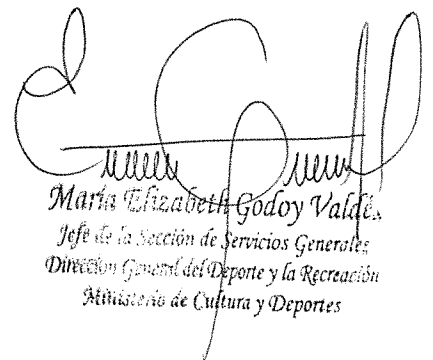 María Elizabeth Godoy Valdés
Jefe de la Sección de Servicios Generales
Dirección General del Deporte y la Recreación
Ministerio de Cultura y Deportes